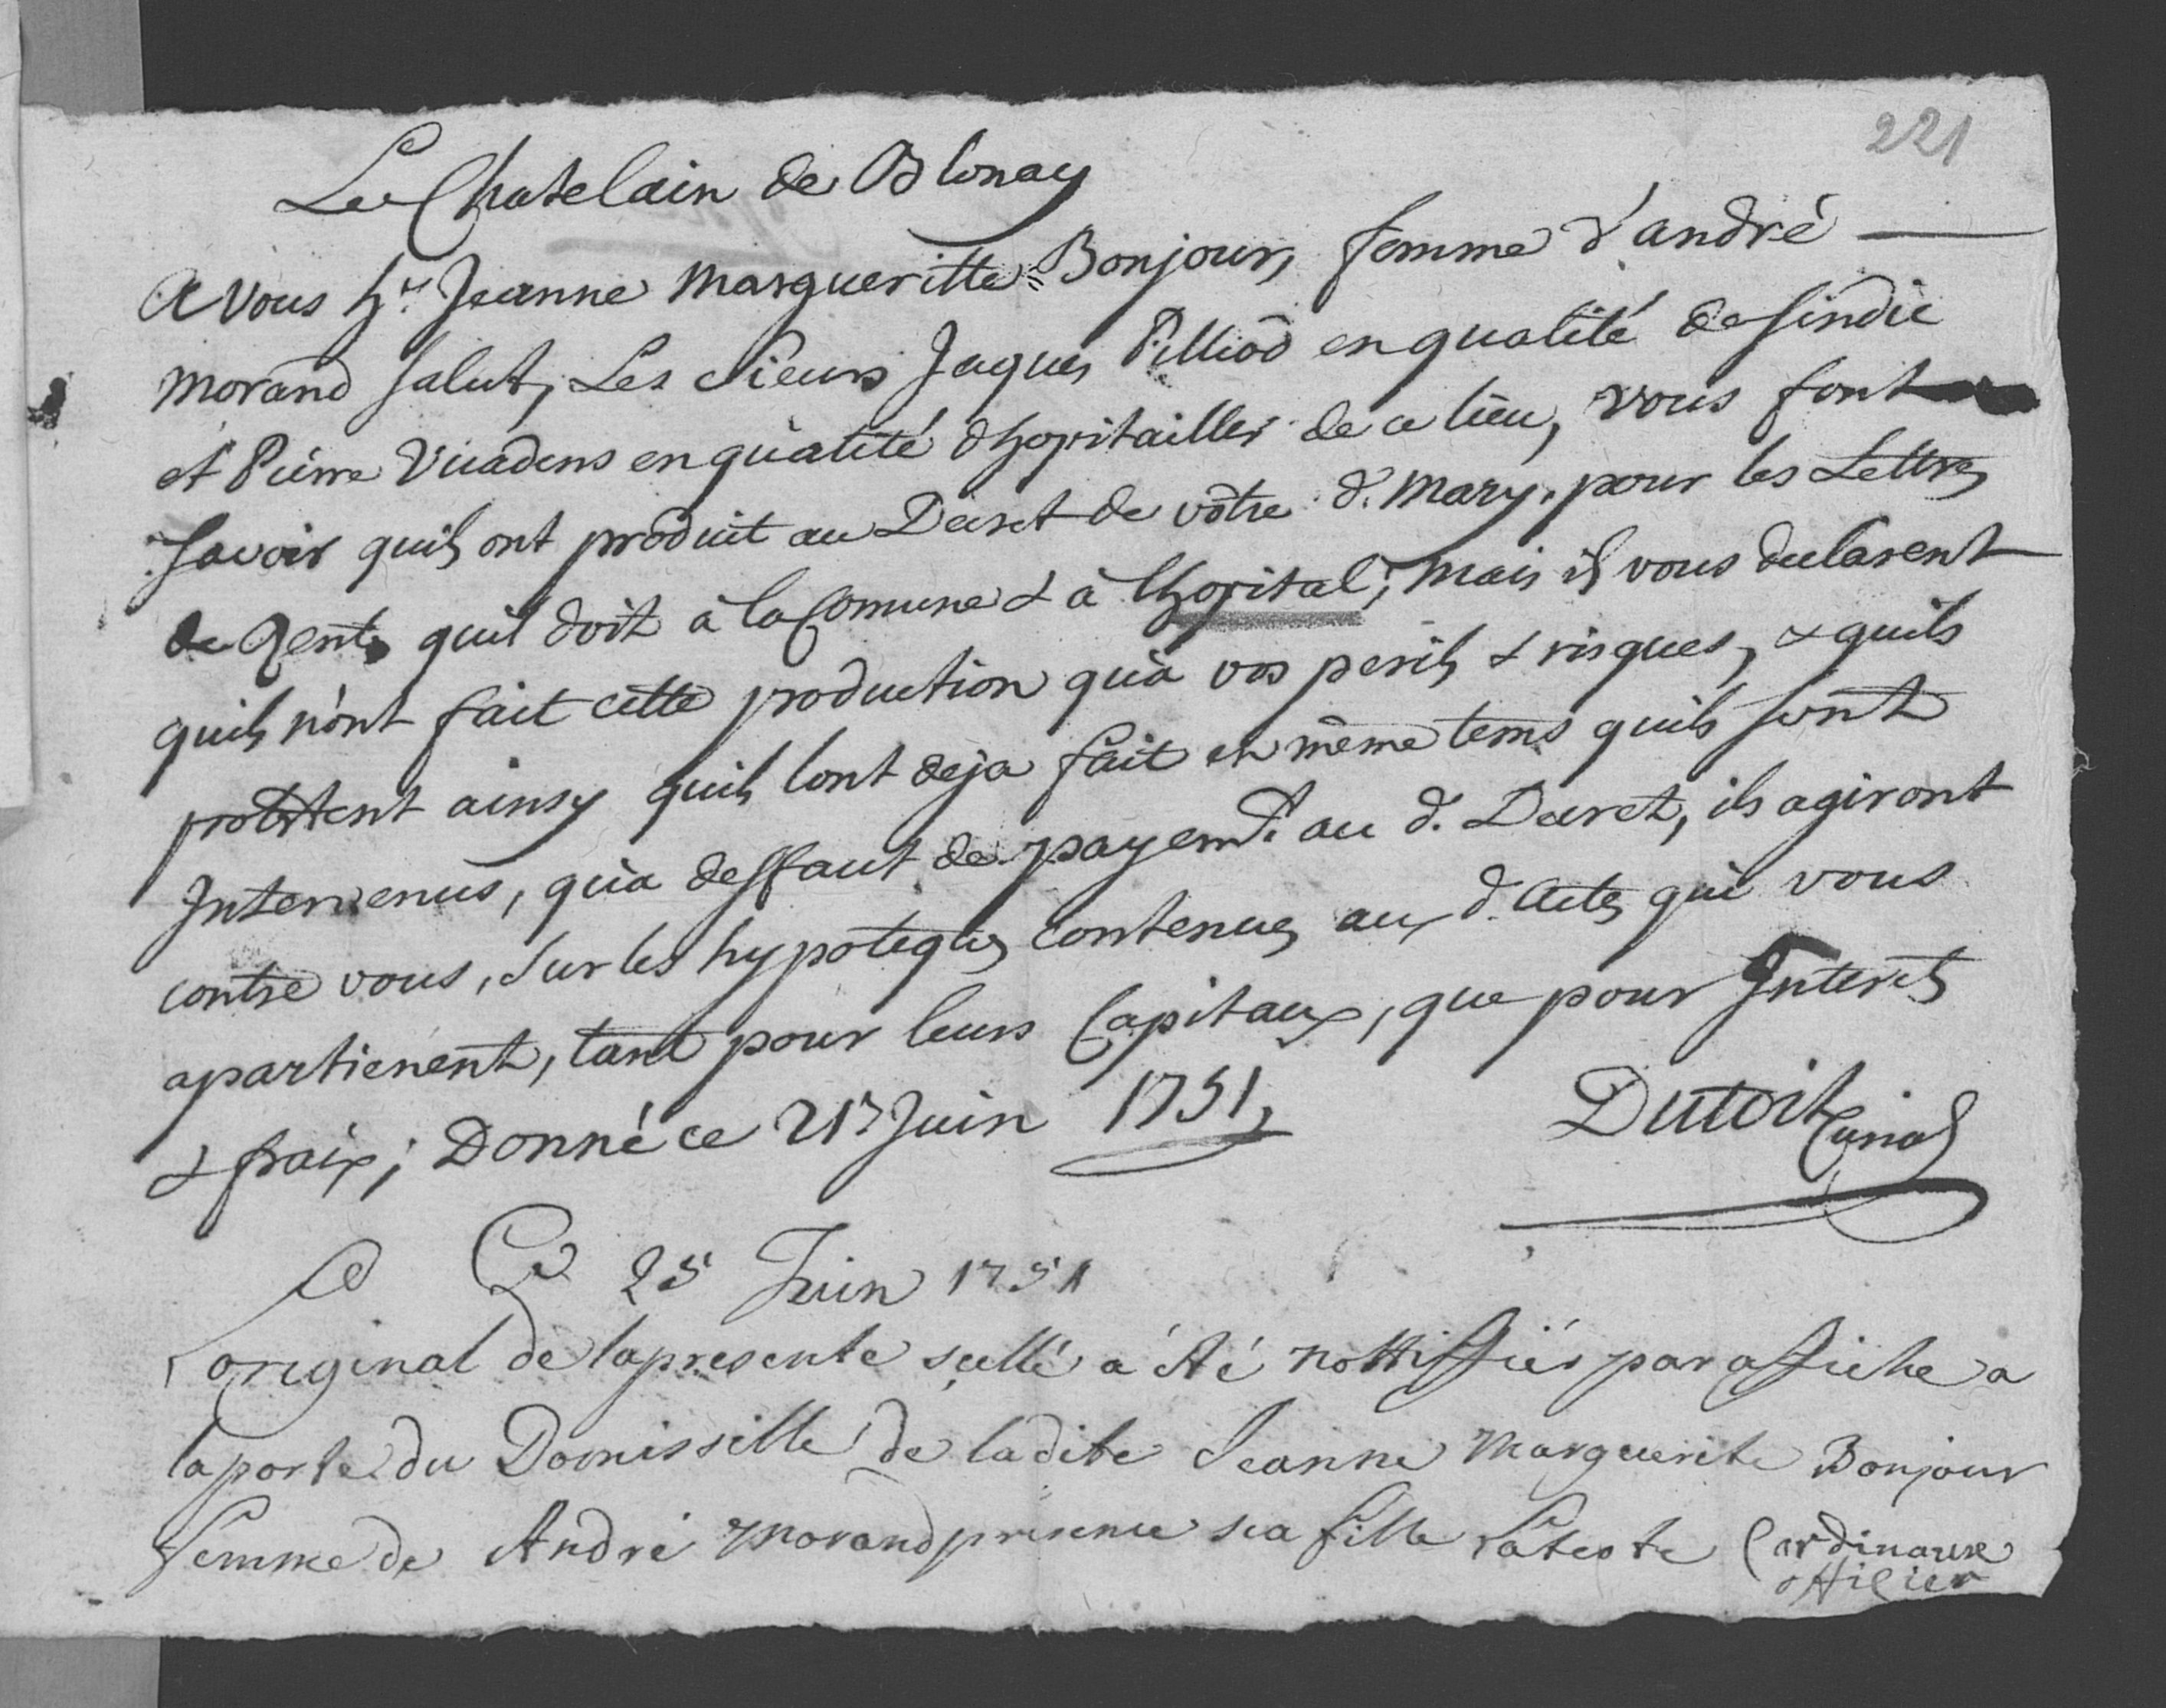 221
Le Chatelain de Blonay
A vous h.e Jeanne Margueritte Bonjour, femme d'andré
Morand Salut, Les Sieurs Jaques Pilliod en qualité de sindic
et Pierre Vuadens en qualité dhopitaillier de ce lieu, vous font
savoir quils ont produit au Decret de vôtre d. Mary, pour les Lettres
de Rente quil doit à la Comune & à lhopital; Mais ils vous declarent
quils n'ont fait cette production qu'à vos perils & risques, & quils
protestent ainsy quils lont deja fait en même tems quils sont
Intervenus, qu'a deffaut de payemt. au d. Decret, ils agiront
contre vous, Sur les hypoteques contenues aux d. Actes qui vous
apartienent, tant pour leurs Capitaux, que pour Interets
& fraix; Donné ce 21e Juin 1751,
Dutoit Curial
Ce 25 Juin 1751
L original de la presente scellé a été nottiffiér par affiche a
la porte du Domissille de ladite Jeanne Marguerite Bonjour
femme de André Morand presence sa fille l'ateste Cardinaux
officier